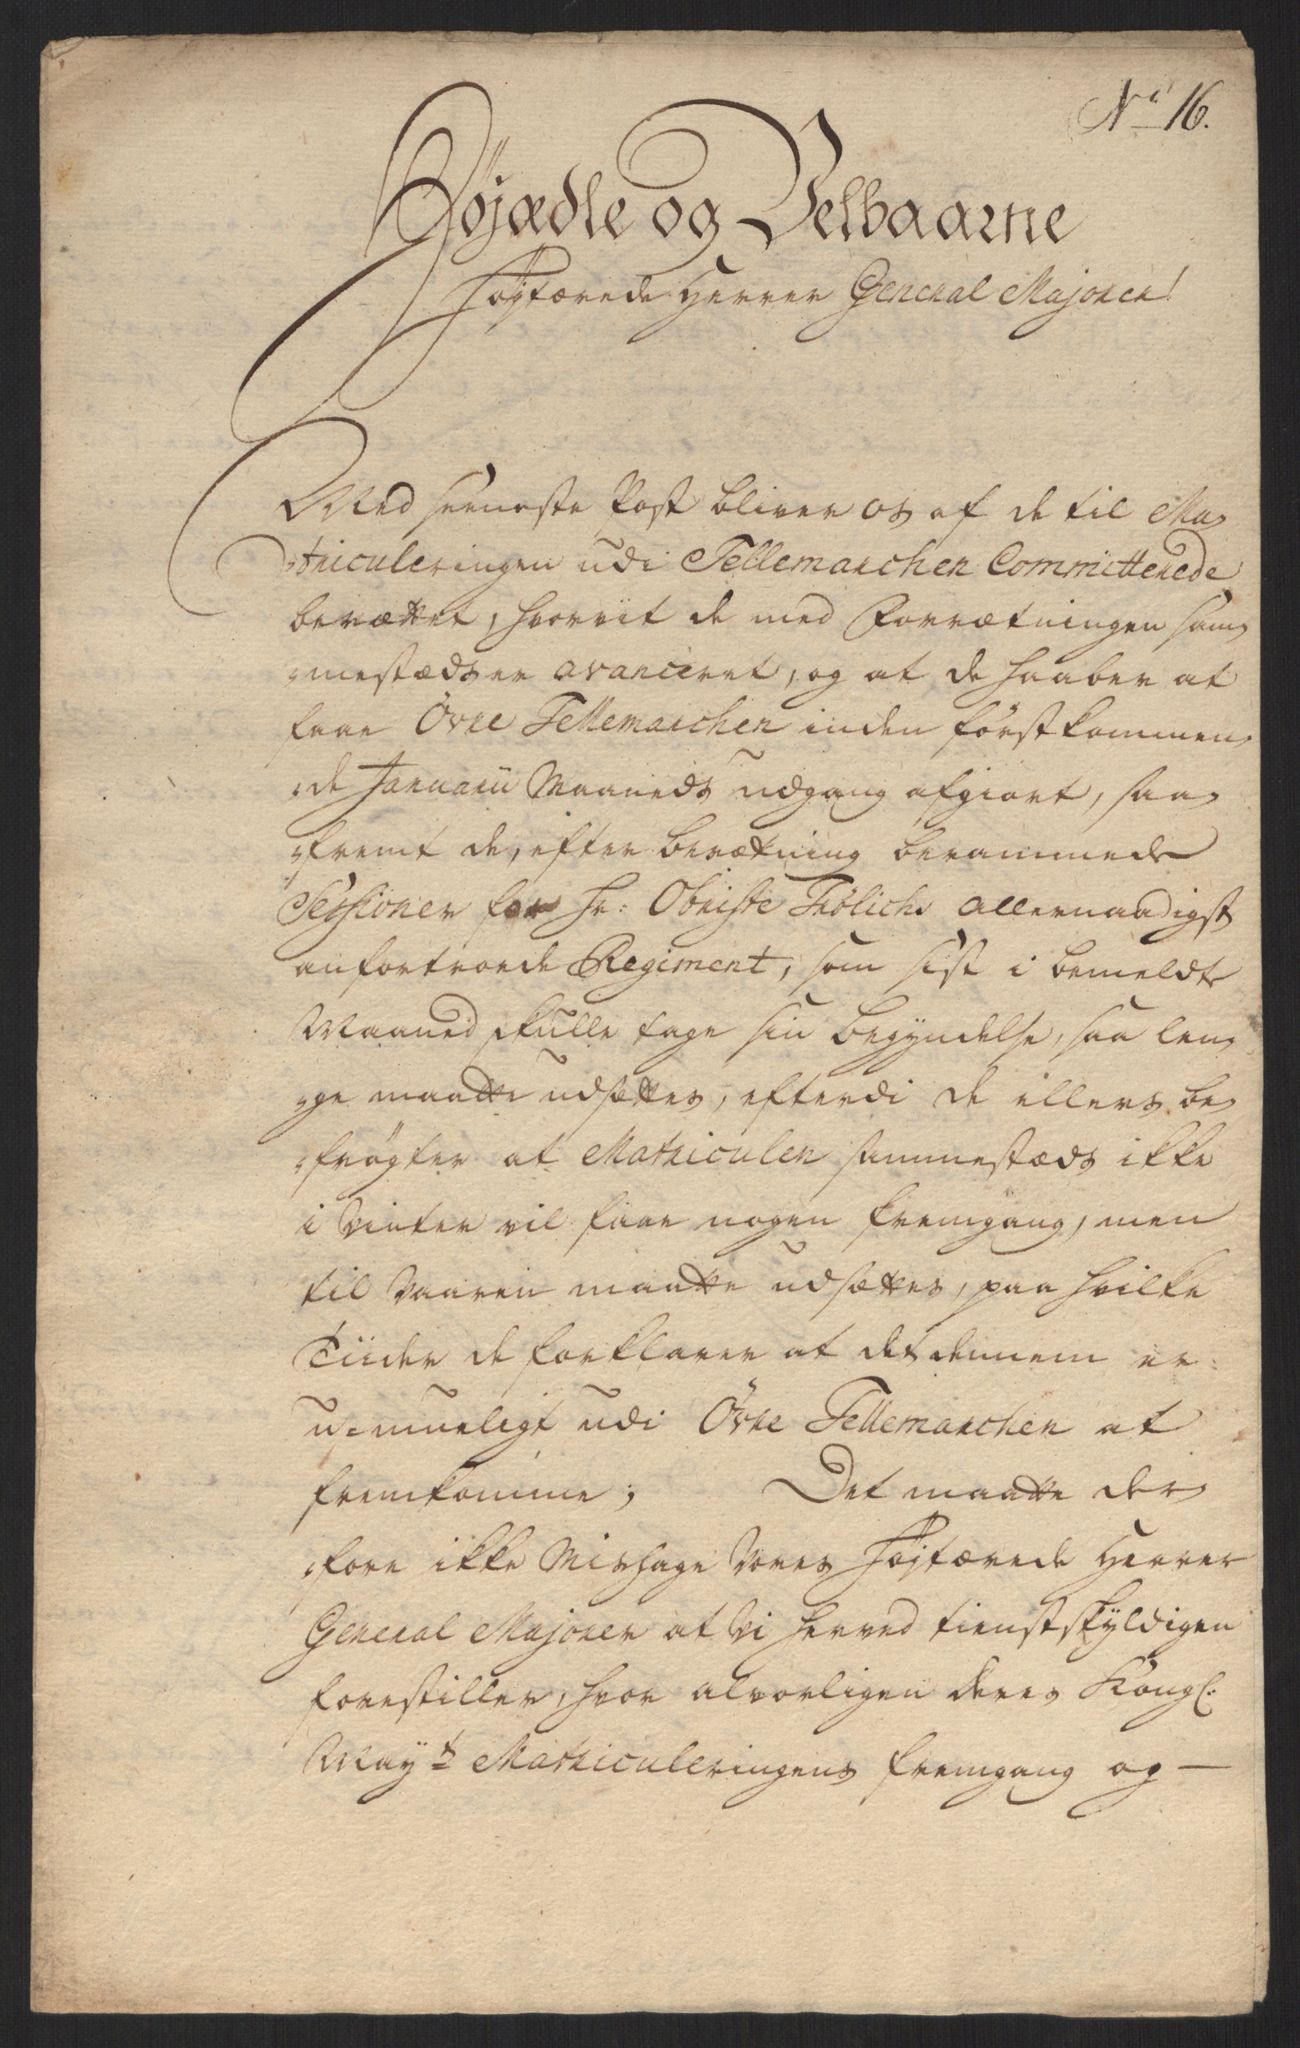 No 16.
Højædle og Velbaarne
Højtærede Herrer General Majorer!
Med seeneste Post bliver os af de til Ma-
-triculeringen udi Tellemarchen Committerede
berættet, hvorvit de med Forrætningen sam-
-mestæds er avanceret, og at de haaber at
faae Øvre Tellemarchen inden førstkommen-
-de Januarii Maaneds udgang afgiort, saa-
-fremt de, efter berætning berammede
Sessioner for Hr: Obriste Frölichs allernaadigst
anfortroede Regiment, som sist i bemeldte
Maaned skulle tage sin begÿndelse, saa len-
-ge maatte udsættes, efterdi de ellers be-
-frøgter at Matriculen sammestæds ikke
i Vinter vil faae nogen fremgang, men
til Vaaren maatte udsættes, paa hvilke
Tiider de forklarer at det dennem er
u-mueligt udi Øvre Tellemarchen at
fremkomme; Det maatte der-
-fore ikke Mishage Vores Højtærede Herrer
General Majorer at Vi herved tienstskyldigen
forestiller, hvor alvorligen deres Kongl:
Mayts Matriculeringens fremgang og —